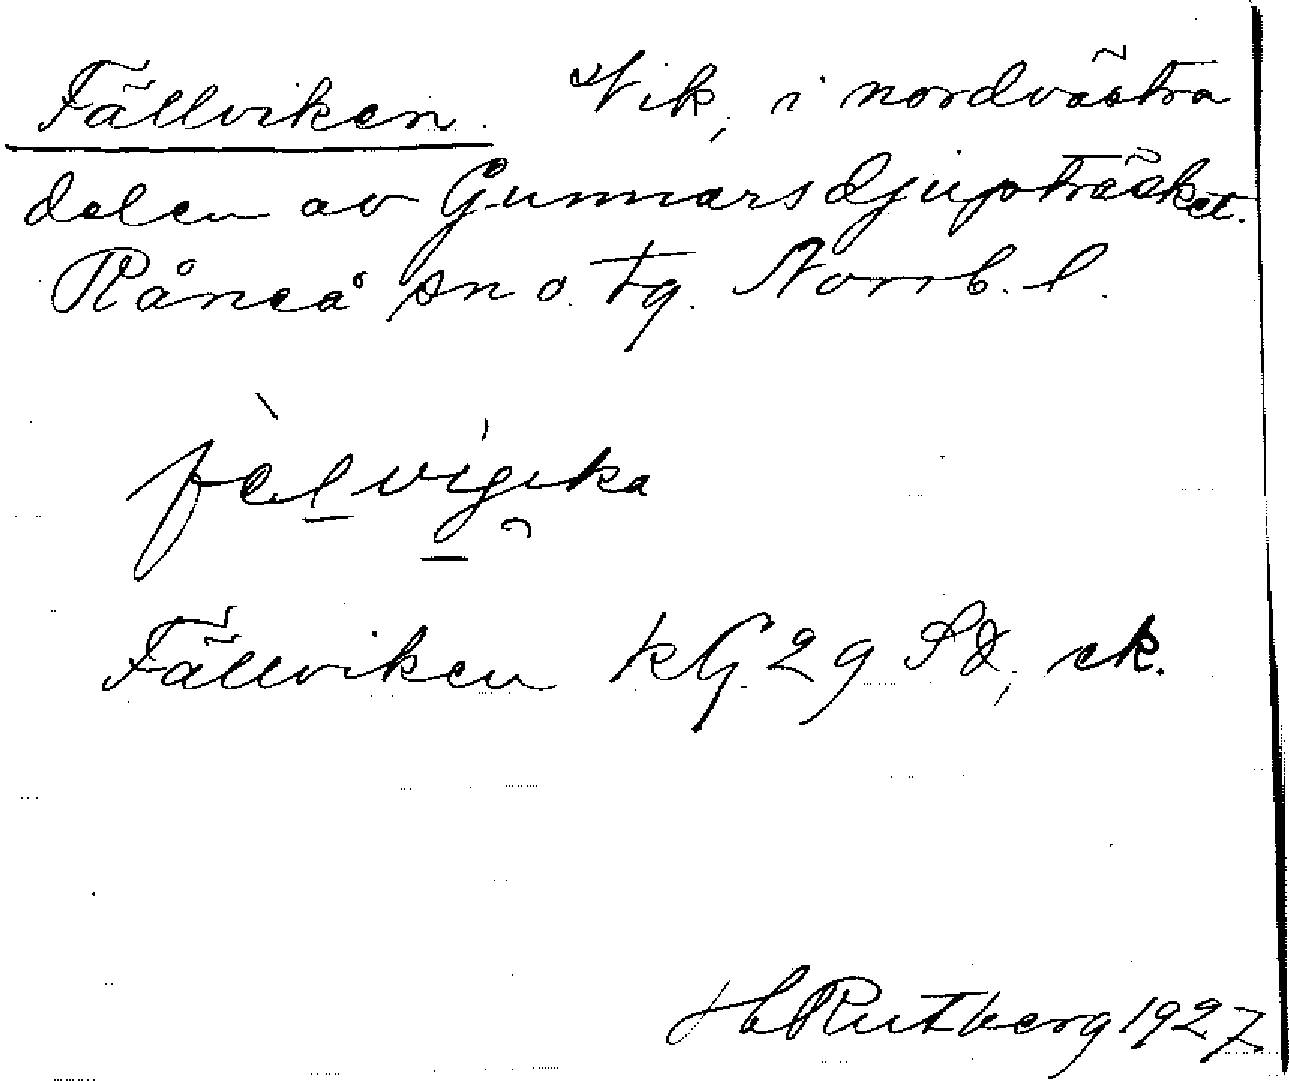 Fällviken. Vik, i nordvästra
delen av Gunnarsdjupträsket.
Råneå sn o. tg. Norrb. l.
Fällviken kG 29 SO, ek.
H Rutberg 1927